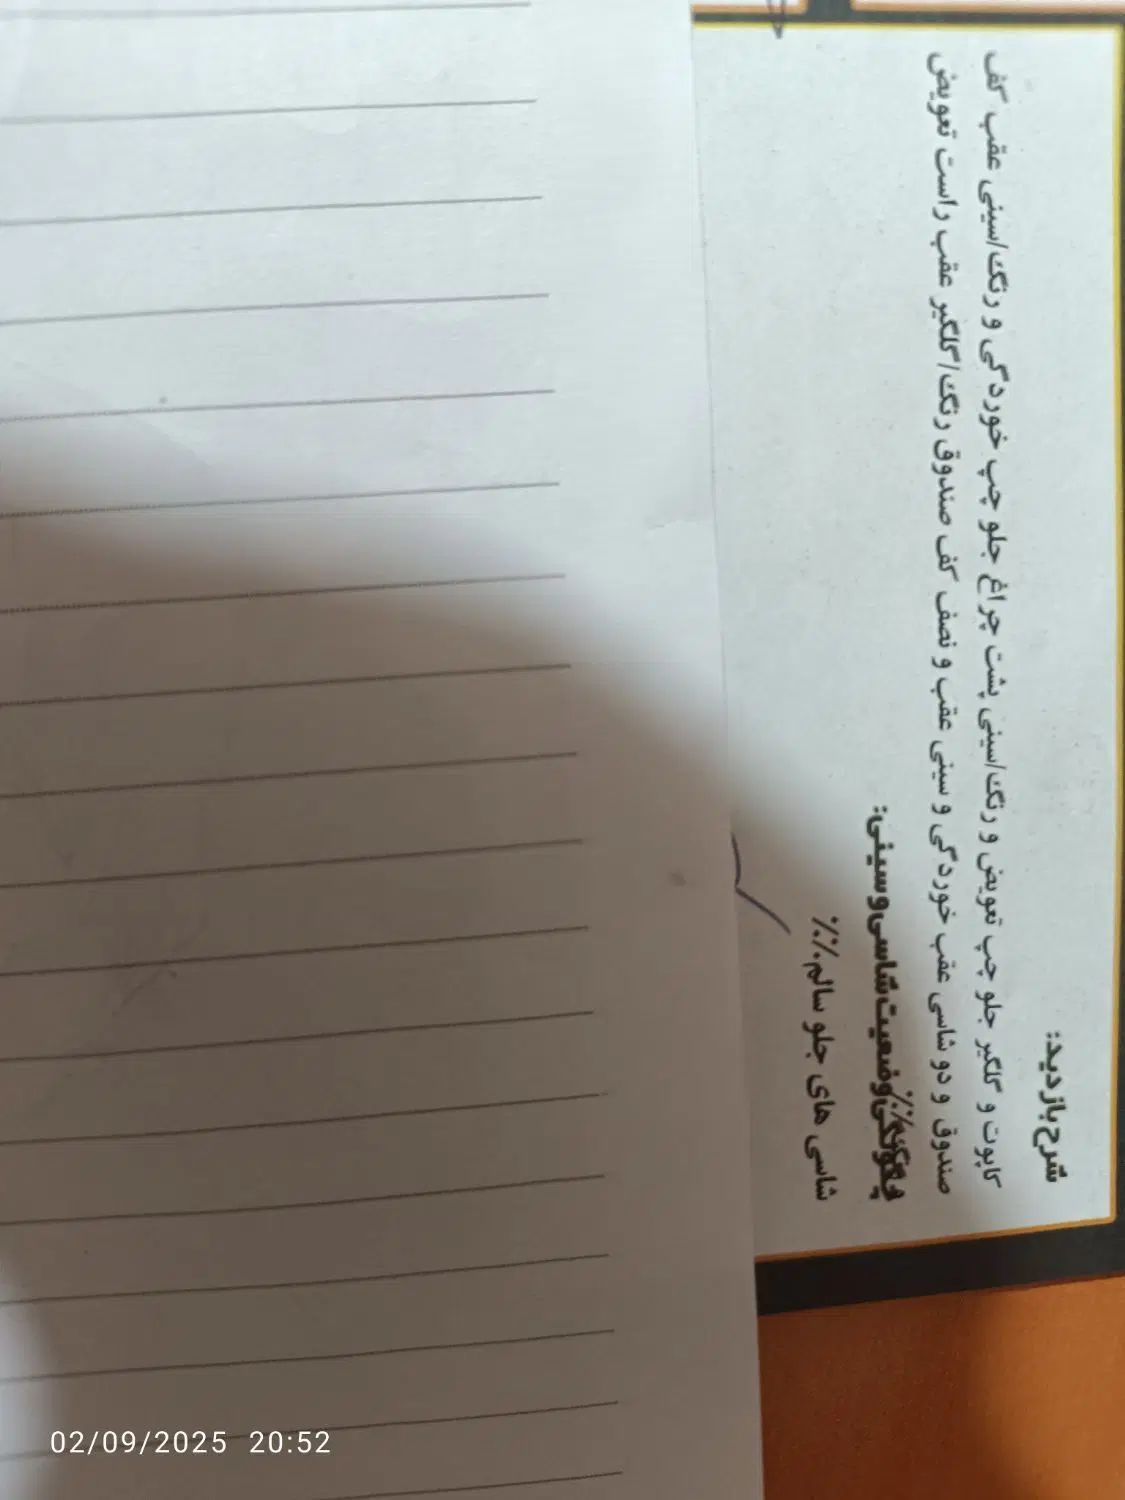 شرح بازدید:
کاپوت و گلگیر جلو چپ تعویض و رنگ/سینی پشت چراغ جلو چپ خوردگی و رنگ/سینی عقب کف
صندوق و دو شاسی عقب خوردگی و سینی عقب و نصف کف صندوق رنگ/گلگیر عقب راست تعویض
چگونگی وضعیت شاسی و سینی:
شاسی های جلو سالم.٪.٪
02/09/2025 20:52